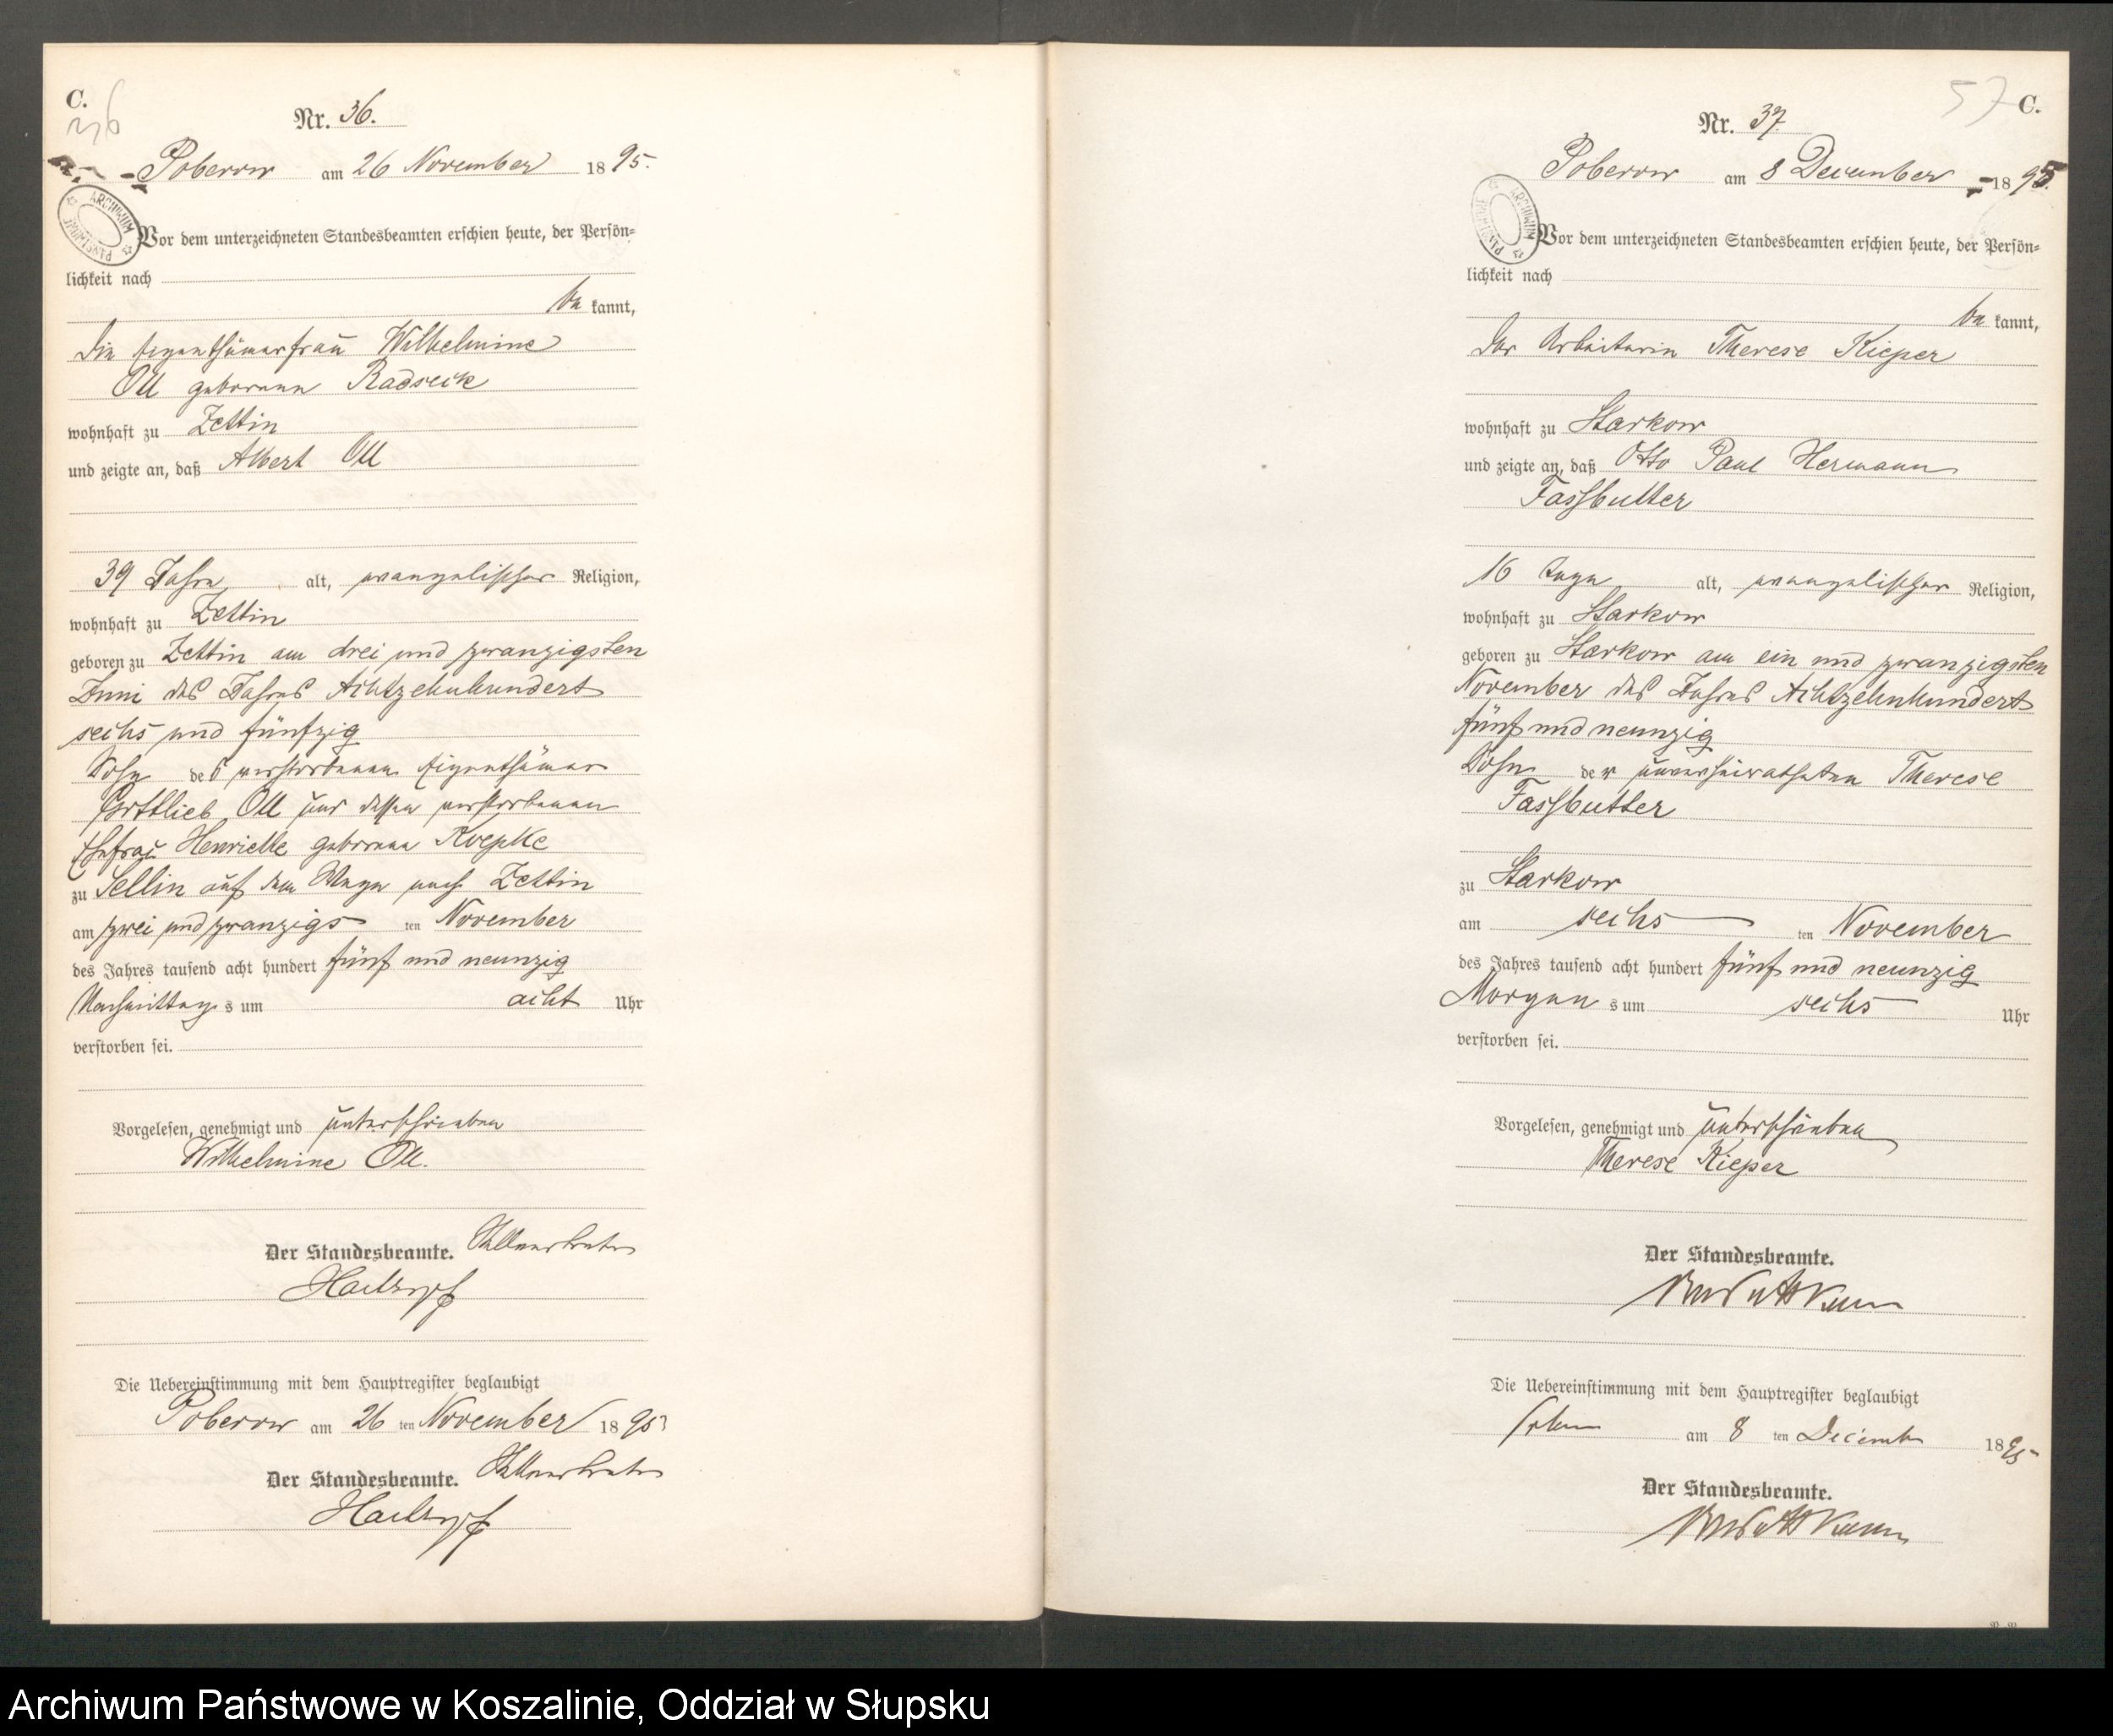 C.
36
Nr. 36.
Poberow am 26 November 1895.
ARCHIWUM PAŃSTWOWE
Vor dem unterzeichneten Standesbeamten erschien heute, der Persön=
lichkeit nach
be kannt,
die Eigenthümerfrau Wilhelmine
Ott geborene Radseck
wohnhaft zu Zettin
und zeigte an, daß Albert Ott
39 Jahre alt, evangelischer Religion,
wohnhaft zu Zettin
geboren zu Zettin am drei und zwanzigsten
Juni des Jahres Achtzehnhundert
sechs und fünfzig
Sohn des verstorbenen Eigenthümer
Gottlieb Ott und dessen verstorbenen
Ehefrau Henriette geborene Koepke
zu Sellin auf dem Wege nach Zettin
am zwei und zwanzigs ten November
des Jahres tausend acht hundert fünf und neunzig
Nachmittag s um acht Uhr
verstorben sei.
Vorgelesen, genehmigt und unterschrieben
Wilhelmine Ott.
Der Standesbeamte. Stellvertreter
Die Uebereinstimmung mit dem Hauptregister beglaubigt
Poberow am 26 ten November 1895
Der Standesbeamte. Stellvertreter
57 C.
Nr. 37.
Poberow am 8 December 1895.
ARCHIWUM PAŃSTWOWE
Vor dem unterzeichneten Standesbeamten erschien heute, der Persön=
lichkeit nach
be kannt,
der Arbeiterin Therese Kieper
wohnhaft zu Starkow
und zeigte an, daß Otto Paul Hermann
Fassbutter
16 Tage alt, evangelischer Religion,
wohnhaft zu Starkow
geboren zu Starkow am ein und zwanzigsten
November des Jahres Achtzehnhundert
fünf und neunzig
Sohn der unverheiratheten Therese
Fassbutter
zu Starkow
am sechs ten November
des Jahres tausend acht hundert fünf und neunzig
Morgen s um sechs Uhr
verstorben sei.
Vorgelesen, genehmigt und unterschrieben
Therese Kieper
Der Standesbeamte.
Die Uebereinstimmung mit dem Hauptregister beglaubigt
am 8 ten December 1895
Der Standesbeamte.
Archiwum Państwowe w Koszalinie, Oddział w Słupsku